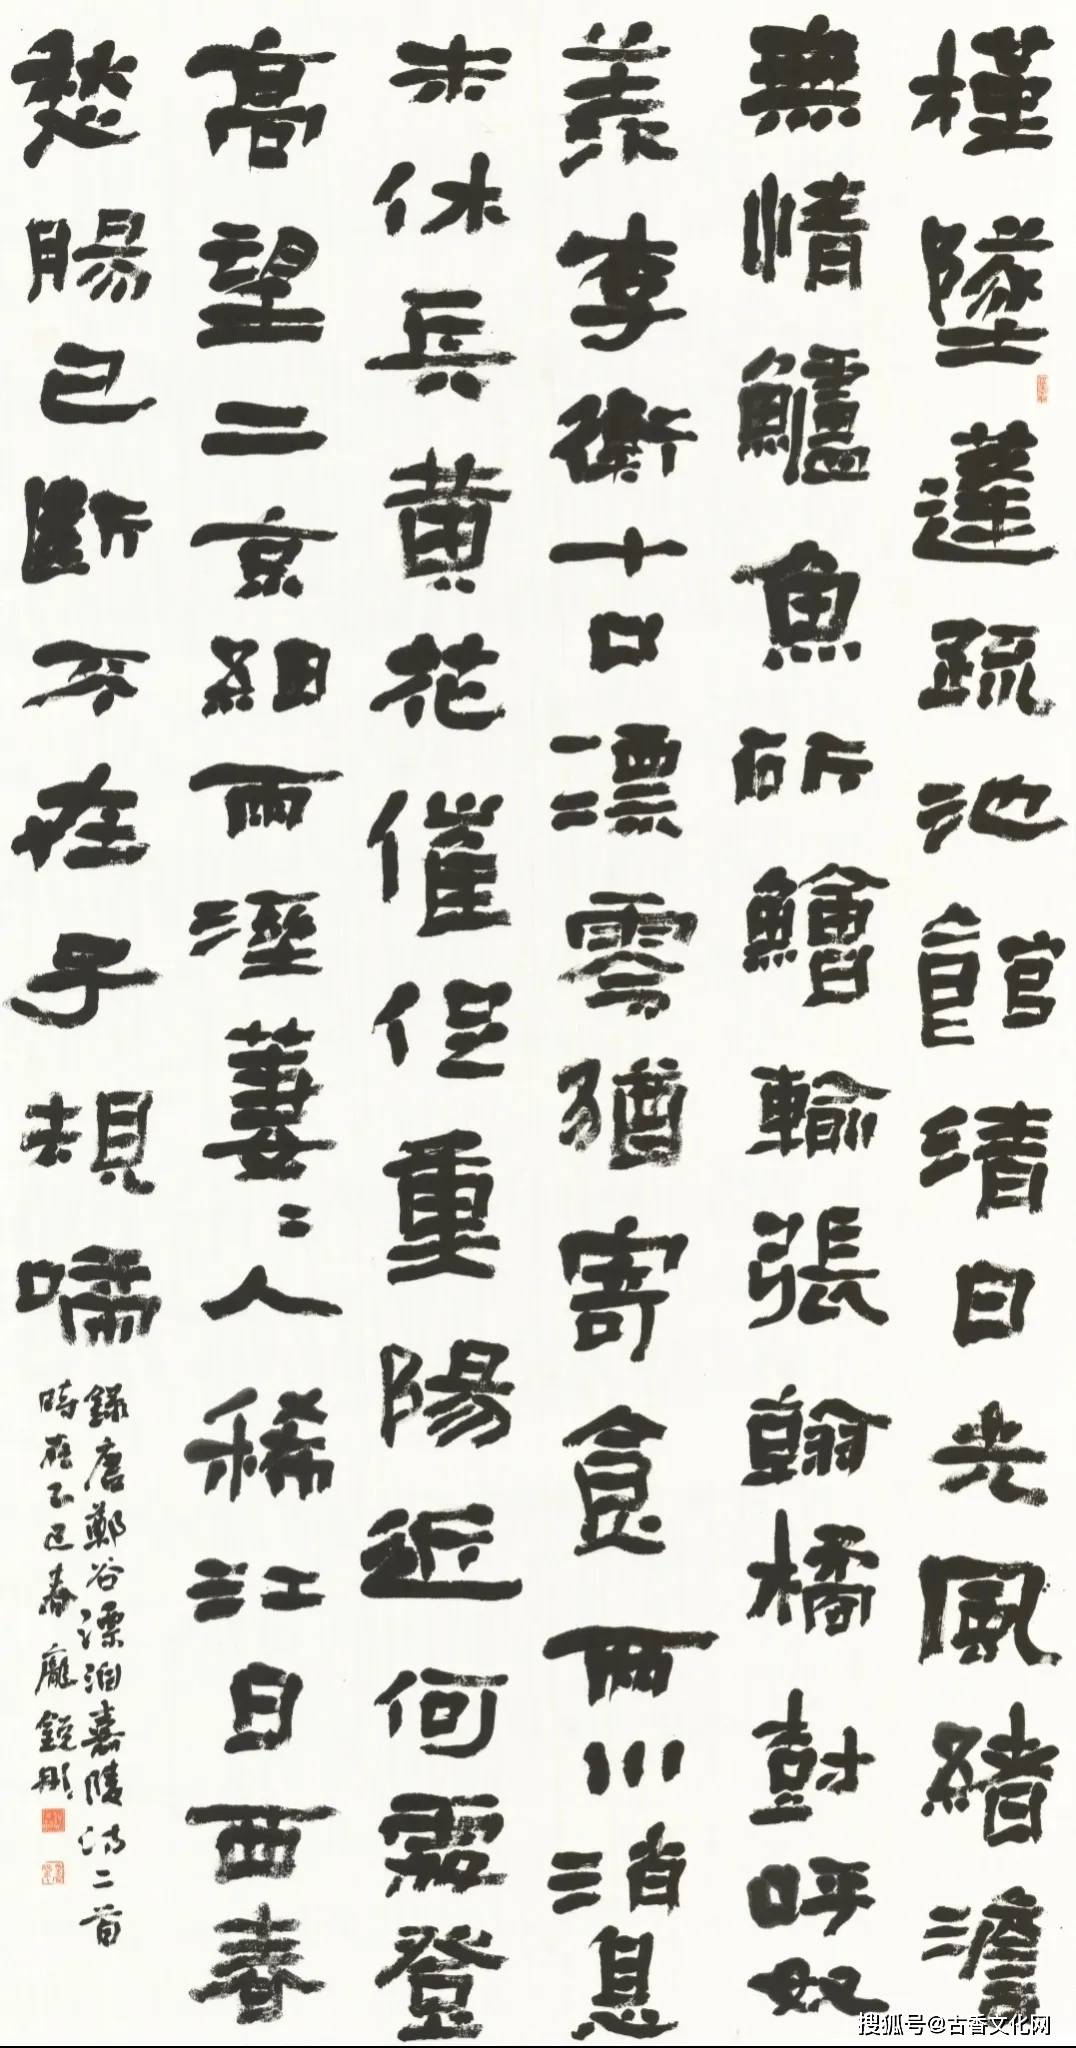 槿墜蓬疏池館清日光風緒澹
無情鱸魚斫鱠輸張翰橘尌呼奴
羨李衡十口漂零猶寄食兩川消息
未休兵黃花催促重陽近何處登
高望二京細雨溼萋〻人稀江日西春
愁腸已斷不在子規啼
錄唐鄭谷漂泊嘉陵詩二首
時在乙巳春龐銳彤
搜狐号@古香文化网